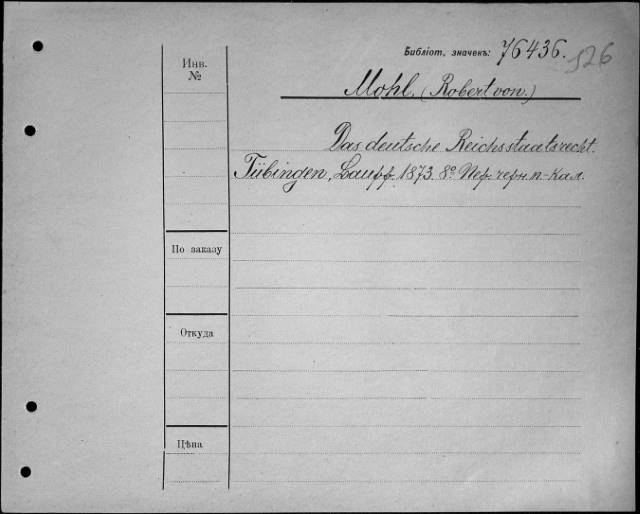 Библіот. значекъ: 76436.
126
Инв.
№
Mohl. (Robert von.)
Das deutsche Reichsstaatsrecht.
Tübingen, Laupp. 1873. 8º. Пер. черн. п-кал.
По заказу
Откуда
Цѣна